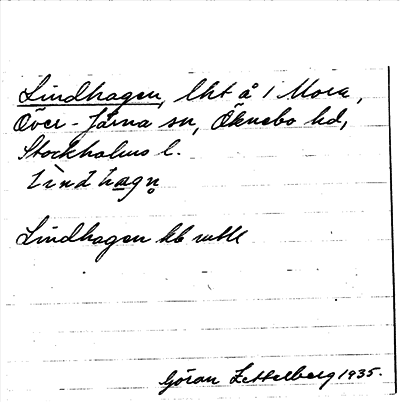 Lindhagen, lht å 1 Mora,
Över-Järna sn, Öknebo hd,
Stockholms l.
lìndhagn̥
Lindhagen kb
Göran Zetterberg 1935.